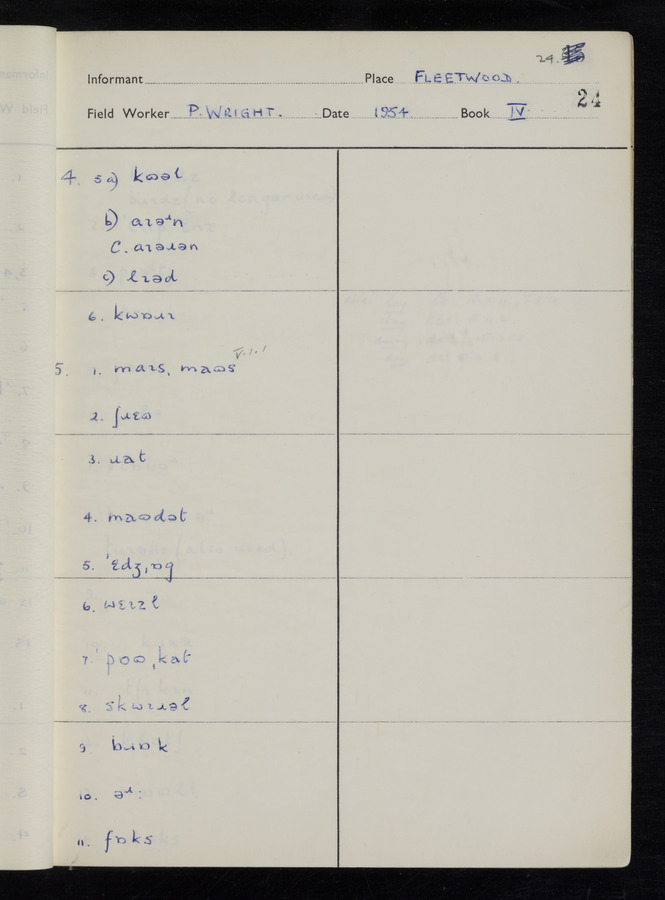 24.
Informant Place FLEETWOOD.
Field Worker P. WRIGHT. Date 1954 Book IV 24
4. 5 a) kɷəl
b) aɪəʴn
C. aɪəɹən
c) lɪəd
6. kwɒɹɪ
V.1.1
5. 1. maɪs, maɷs
2. ʃɹɛɷ
3. ɹat
4. maɷdət
5. ˈɛdʒˌɒg
6. wɛɪzl
7. ˈpoɷˌkat
8. skwɪɹəl
9 bɹɒk
10. əʴ:
11. fɒks